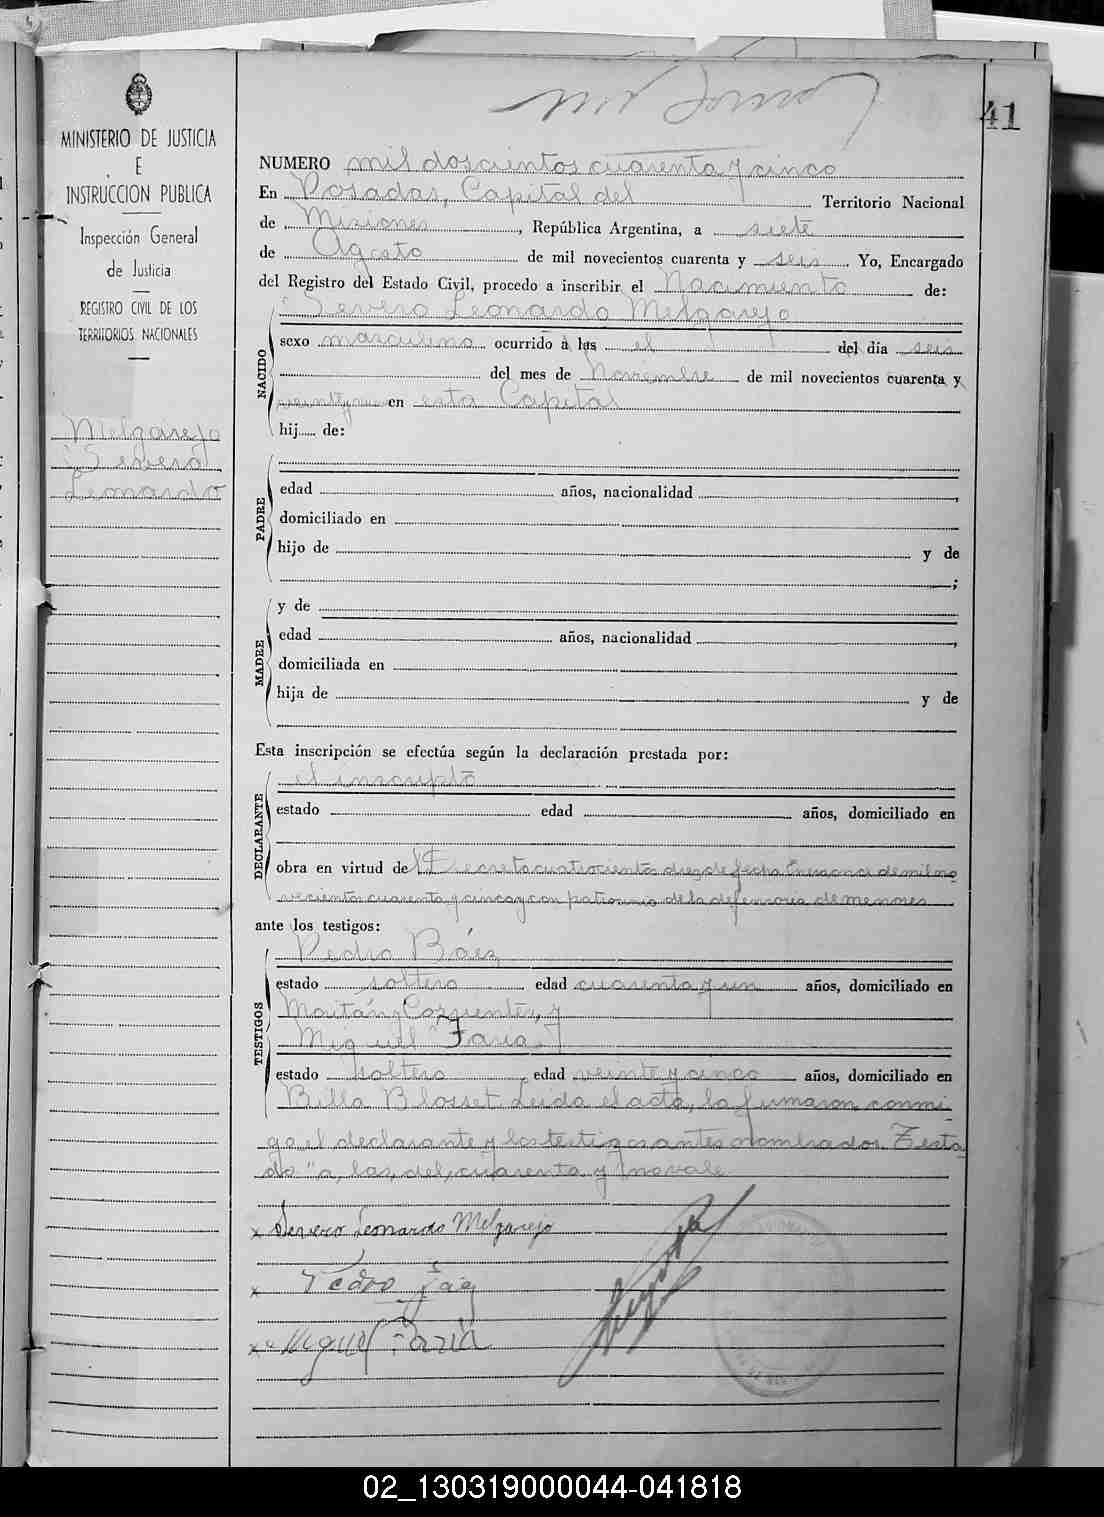 41
MINISTERIO DE JUSTICIA
E
INSTRUCCION PUBLICA
Inspección General
de Justicia
REGISTRO CIVIL DE LOS
TERRITORIOS NACIONALES
Melgarejo
Severo
Leonardo
NUMERO mil doscientos cuarenta y cinco
En Posadas, Capital del Territorio Nacional
de Misiones, República Argentina, a siete
de Agosto de mil novecientos cuarenta y seis. Yo, Encargado
del Registro del Estado Civil, procedo a inscribir el Nacimiento de:
Severo Leonardo Melgarejo
NACIDO
sexo masculino ocurrido à las el del dia seis
del mes de Noviembre de mil novecientos cuarenta y
en esta Capital
hij..... de:
PADRE
edad años, nacionalidad ,
domiciliado en
hijo de y de
;
MADRE
y de
edad años, nacionalidad ,
domiciliada en
hija de y de
Esta inscripción se efectúa según la declaración prestada por:
DECLARANTE
el inscripto
estado edad años, domiciliado en
obra en virtud del Decreto cuatrocientos diez de fecha de mil no
vecientos cuarenta y cinco y con patrocinio de la defensoria de menores
ante los testigos:
TESTIGOS
Pedro Báez
estado soltero edad cuarenta y un años, domiciliado en
Corrientes, y
Miguel Faria
estado soltero, edad veinte y cinco años, domiciliado en
Billa Blosset. Leida el acta, la firmaron conmi
go el declarante y los testigos antes nombrados. Testa
do "a, las, del, cuarenta y" no vale
x Severo Leonardo Melgarejo
x Pedro
x Miguel Faria
02_130319000044-041818